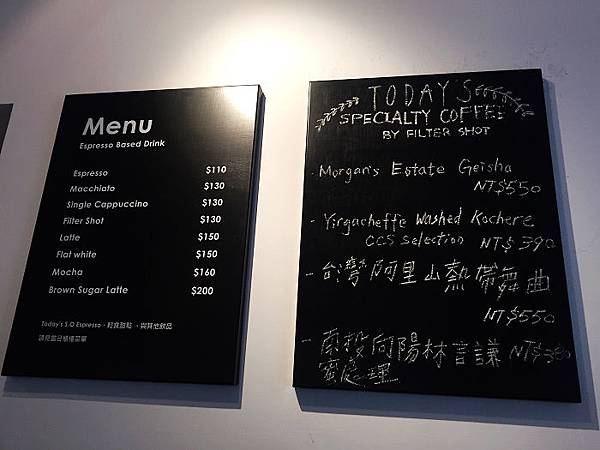 Menu
Espresso Based Drink
Espresso $110
Macchiato $130
Single Cappuccino $130
Filter Shot $130
Latte $150
Flat white $150
Mocha $160
Brown Sugar Latte $200
Today's S.O Espresso、輕食甜點、與其他飲品
請見當日櫃檯菜單
TODAY'S
SPECIALTY COFFEE
BY FILTER SHOT
· Morgan's Estate Geisha
NT$550
- Yirgacheffe Washed Kochere
CCS Selection NT$390
- 台灣阿里山熱帶舞曲
NT$550
- 南投向陽林言謙 NT$380
蜜處理